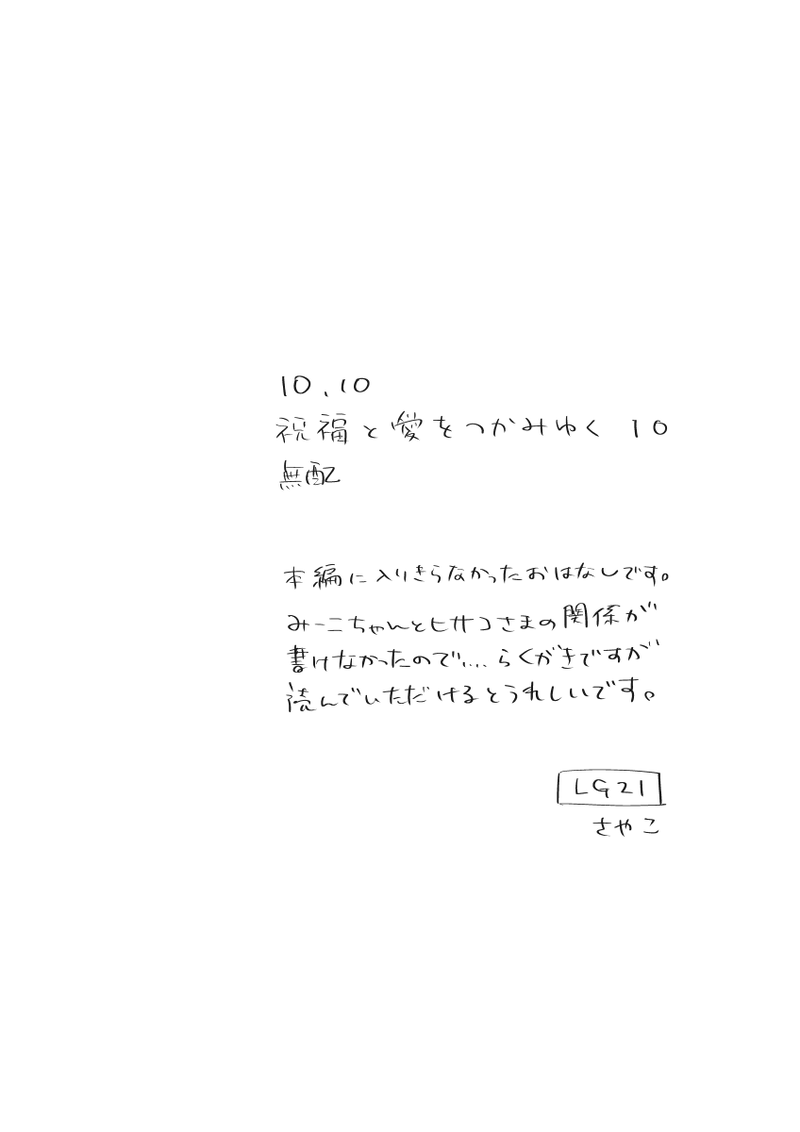 10.10
祝福と愛をつかみゆく 10
無配
本編に入りきらなかったおはなしです。
みーこちゃんとヒサコさまの関係が
書けなかったので…らくがきですが
読んでいただけるとうれしいです。
LG21
さやこ